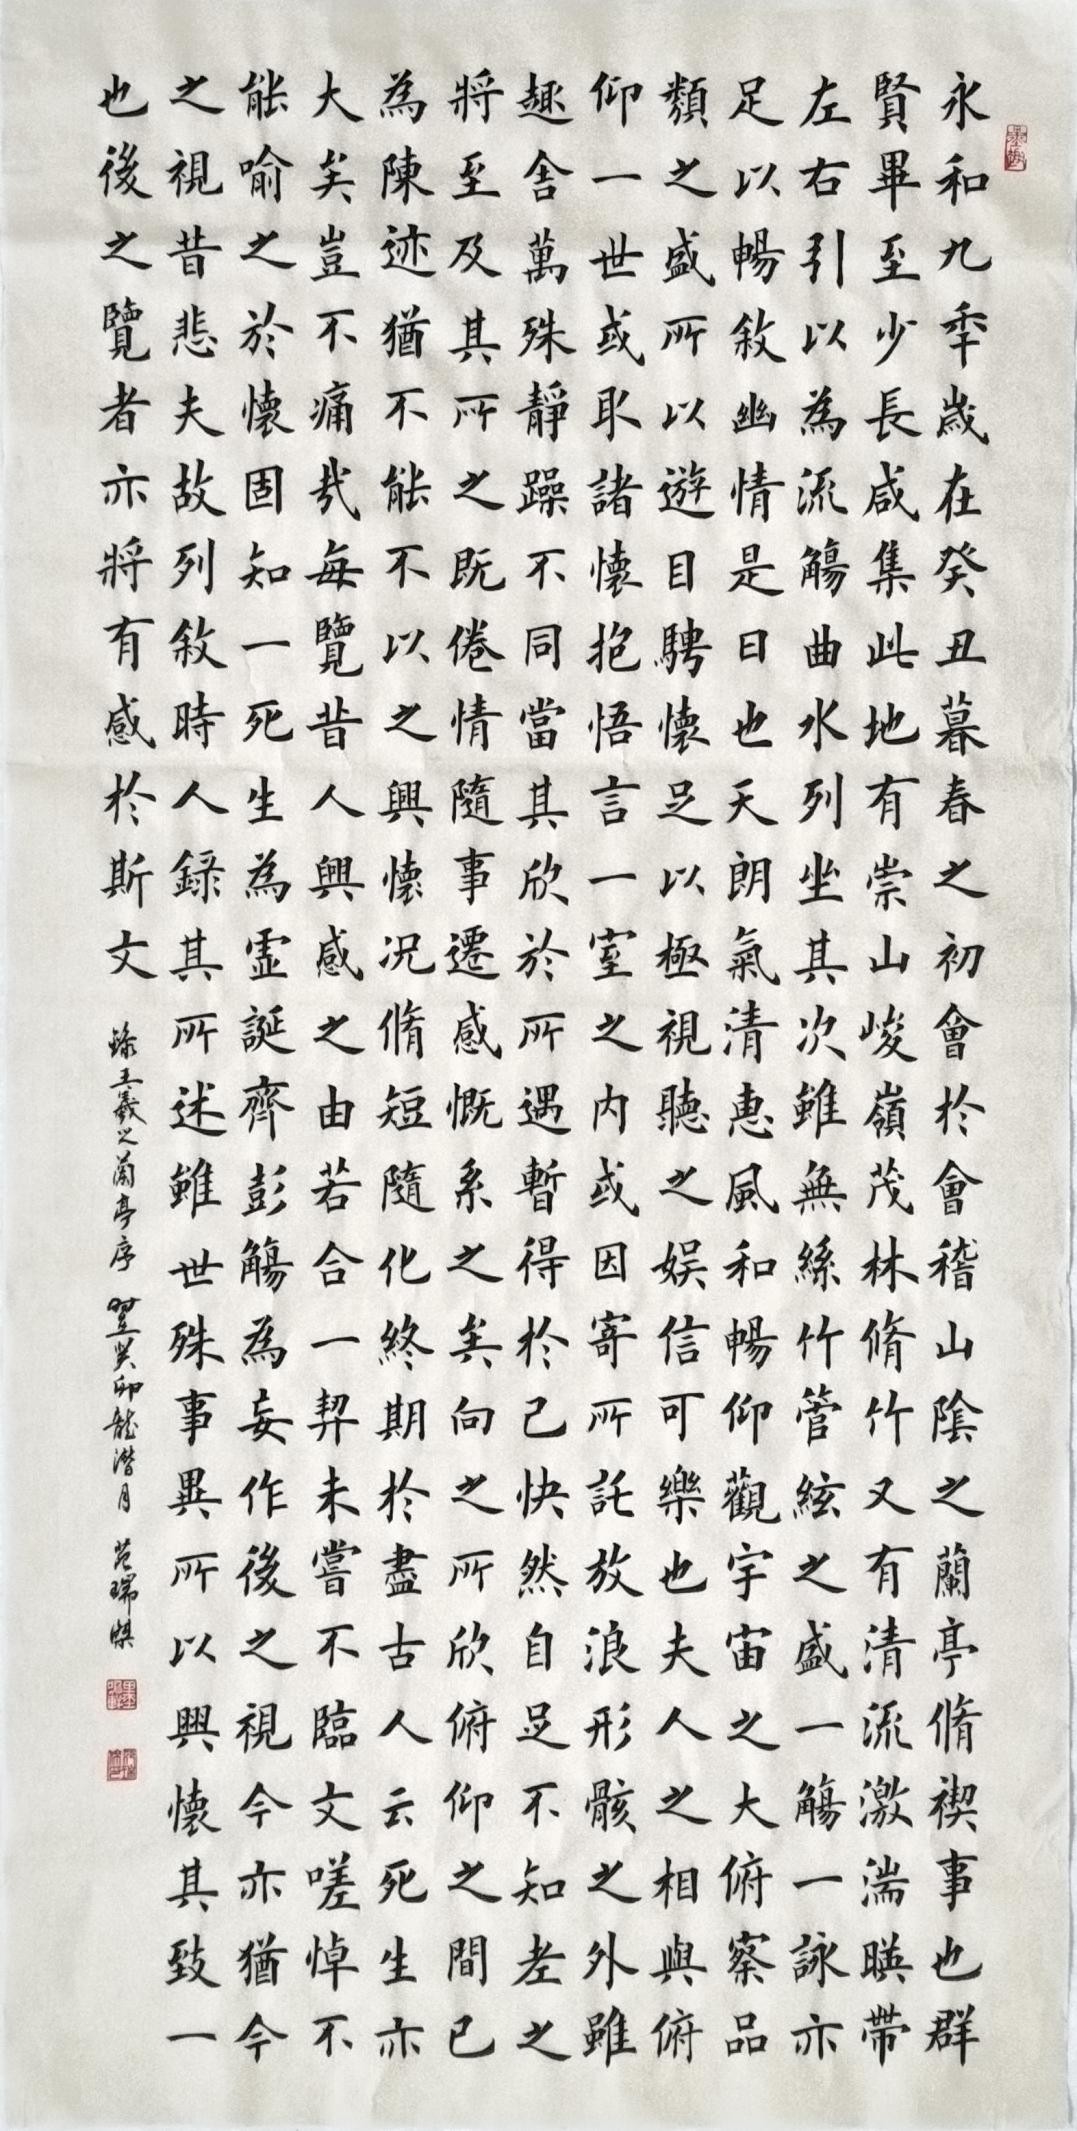 永和九秊歲在癸丑暮春之初會於會稽山陰之蘭亭脩禊事也群
賢畢至少長咸集此地有崇山峻嶺茂林脩竹又有清流激湍暎帶
左右引以為流觴曲水列坐其次雖無絲竹管絃之盛一觴一詠亦
足以暢敘幽情是日也天朗氣清惠風和暢仰觀宇宙之大俯察品
類之盛所以遊目騁懷足以極視聽之娛信可樂也夫人之相與俯
仰一世或取諸懷抱悟言一室之内或因寄所託放浪形骸之外雖
趣舍萬殊靜躁不同當其欣於所遇暫得於己快然自足不知老之
將至及其所之既倦情隨事遷感慨系之矣向之所欣俯仰之間已
為陳迹猶不能不以之興懷况脩短隨化終期於盡古人云死生亦
大矣豈不痛哉每覽昔人興感之由若合一契未嘗不臨文嗟悼不
能喻之於懷固知一死生為虛誕齊彭觴為妄作後之視今亦猶今
之視昔悲夫故列敘時人錄其所述雖世殊事異所以興懷其致一
也後之覽者亦將有感於斯文
錄王羲之蘭亭序 癸卯龍潛月 范瑞